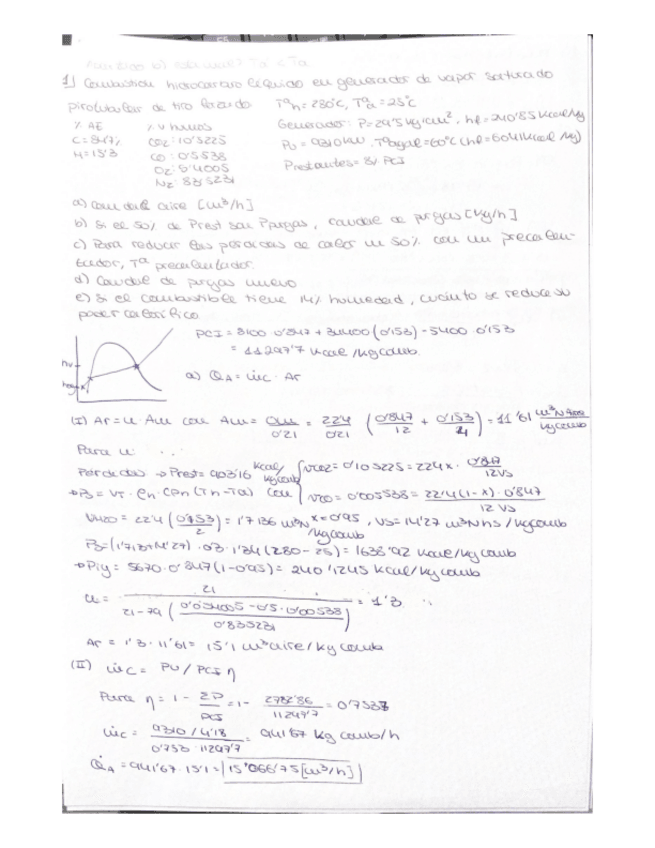 1) Combustión hidrocarburo líquido en generador de vapor saturado
pirotubular de tiro forzado Tªh=280°C, Tªa=25°C
% AE % V humos Generador: P=29'5 kg/cm², hl=240'85 kcal/kg
C=84'7% CO2: 10'5225 Pu=9310 kW. Tªagal=60°C (hl=60'41 kcal/kg)
H=15'3 CO: 0'5538 Prestantes=8% PCI
O2: 5'4005
N2: 83'5231
a) Caudal aire [m³/h]
b) Si el 50% de Prest son Ppurgas, caudal de purgas [kg/h]
c) Para reducir las pérdidas de calor un 50% con un precalen-
tador, Tª precalentador.
d) Caudal de purgas nuevo
e) Si el combustible tiene 14% humedad, cuánto se reduce su
poder calorífico.
PCI = 8100·0'847 + 34400(0'153) - 5400·0'153
= 11297'7 kcal/kgcomb
a) QA = ṁc · Ar
(I) Ar = u Am con Am = Om/0'21 = 22'4/0'21 (0'847/12 + 0'153/4) = 11'61 m³N aire/kgcomb
Para u ...
Pérdidas → Prest = 903'16 kcal/kgcomb
VCO2 = 0'105225 = 22'4 x · 0'847/12Vs
→ Ps = VT · ρn · Cpn (Tn-Ta) con VCO = 0'005538 = 22'4(1-x) · 0'847/12 Vs
VH2O = 22'4 (0'153/2) = 1'7136 m³N/kgcomb x=0'95, Vs = 14'27 m³N hs/kgcomb
Ps = (1'7137+14'27) · 0'3 · 1'34 (280-25) = 1638'92 kcal/kgcomb
→ Piq = 5670 · 0'847 (1-0'95) = 240'1245 kcal/kgcomb
u = 21/(21-79 (0'054005 - 0'5 · 0'00538/0'835231)) = 1'3
Ar = 1'3 · 11'61 = 15'1 m³aire/kg comb
(II) ṁc = Pu / PCI η
Para η = 1 - ΣP/PCI = 1 - 2782'86/11297'7 = 0'7537
ṁc = 9310/4'18/0'753 · 11297'7 = 941'67 kg comb/h
QA = 941'67 · 15'1 = 15'066'75 [m³/h]